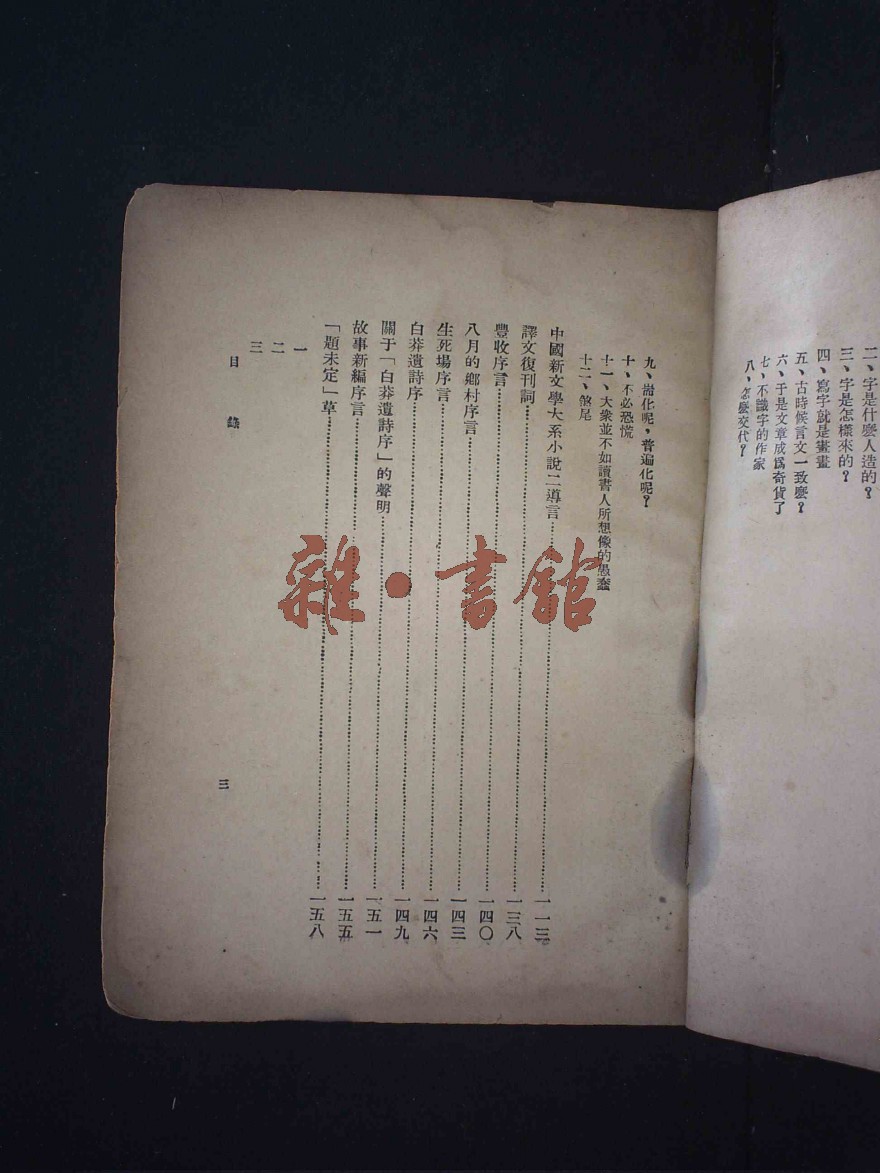 二、字是什麼人造的？
三、字是怎樣來的？
四、寫字就是畫畫
五、古時候言文一致麼？
六、于是文章成爲奇貨了
七、不識字的作家
八、怎麼交代？
九、耑化呢，普遍化呢？
十、不必恐慌
十一、大衆並不如讀書人所想像的愚蠢
十二、煞尾
中國新文學大系小說二導言……一一三
譯文復刊詞……一三八
豐收序言……一四〇
八月的鄉村序言……一四三
生死場序言……一四六
白莽遺詩序……一四九
關于「白莽遺詩序」的聲明……一五一
故事新編序言……一五五
「題未定」草……一五八
一
二
三
目錄
三
雜·書館